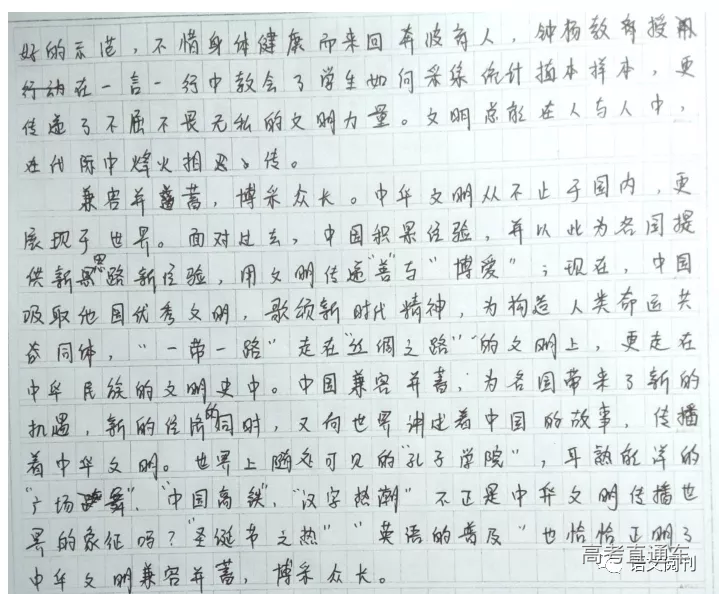 好的示范，不惜身体健康而来回奔波育人，钟杨教授用
行动在一言一行中教会了学生如何采绿统计植本样本，更
传递了不屈不畏无私的文明力量。文明总能在人与人中，
在代际中烽火相传。
兼容并蓄，博采众长。中华文明从不止于国内，更
展现于世界。面对过去，中国积累经验，并以此为各国提
供新思路新经验，用文明传递"善"与"博爱"；现在，中国
吸取他国优秀文明，歌颂新时代精神，为构造人类命运共
同体，"一带一路"走在"丝绸之路"的文明上，更走在
中华民族的文明史中。中国兼容并蓄，为各国带来了新的
机遇，新的经济的同时，又向世界讲述着中国的故事，传播
着中华文明。世界上随处可见的"孔子学院"，耳熟能详的
"广场舞"、"中国高铁"、"汉字热潮"不正是中华文明传播世
界的象征吗？"圣诞节之热""英语的普及"也恰恰正明了
中华文明兼容并蓄，博采众长。
高考直通车
语文阅刊